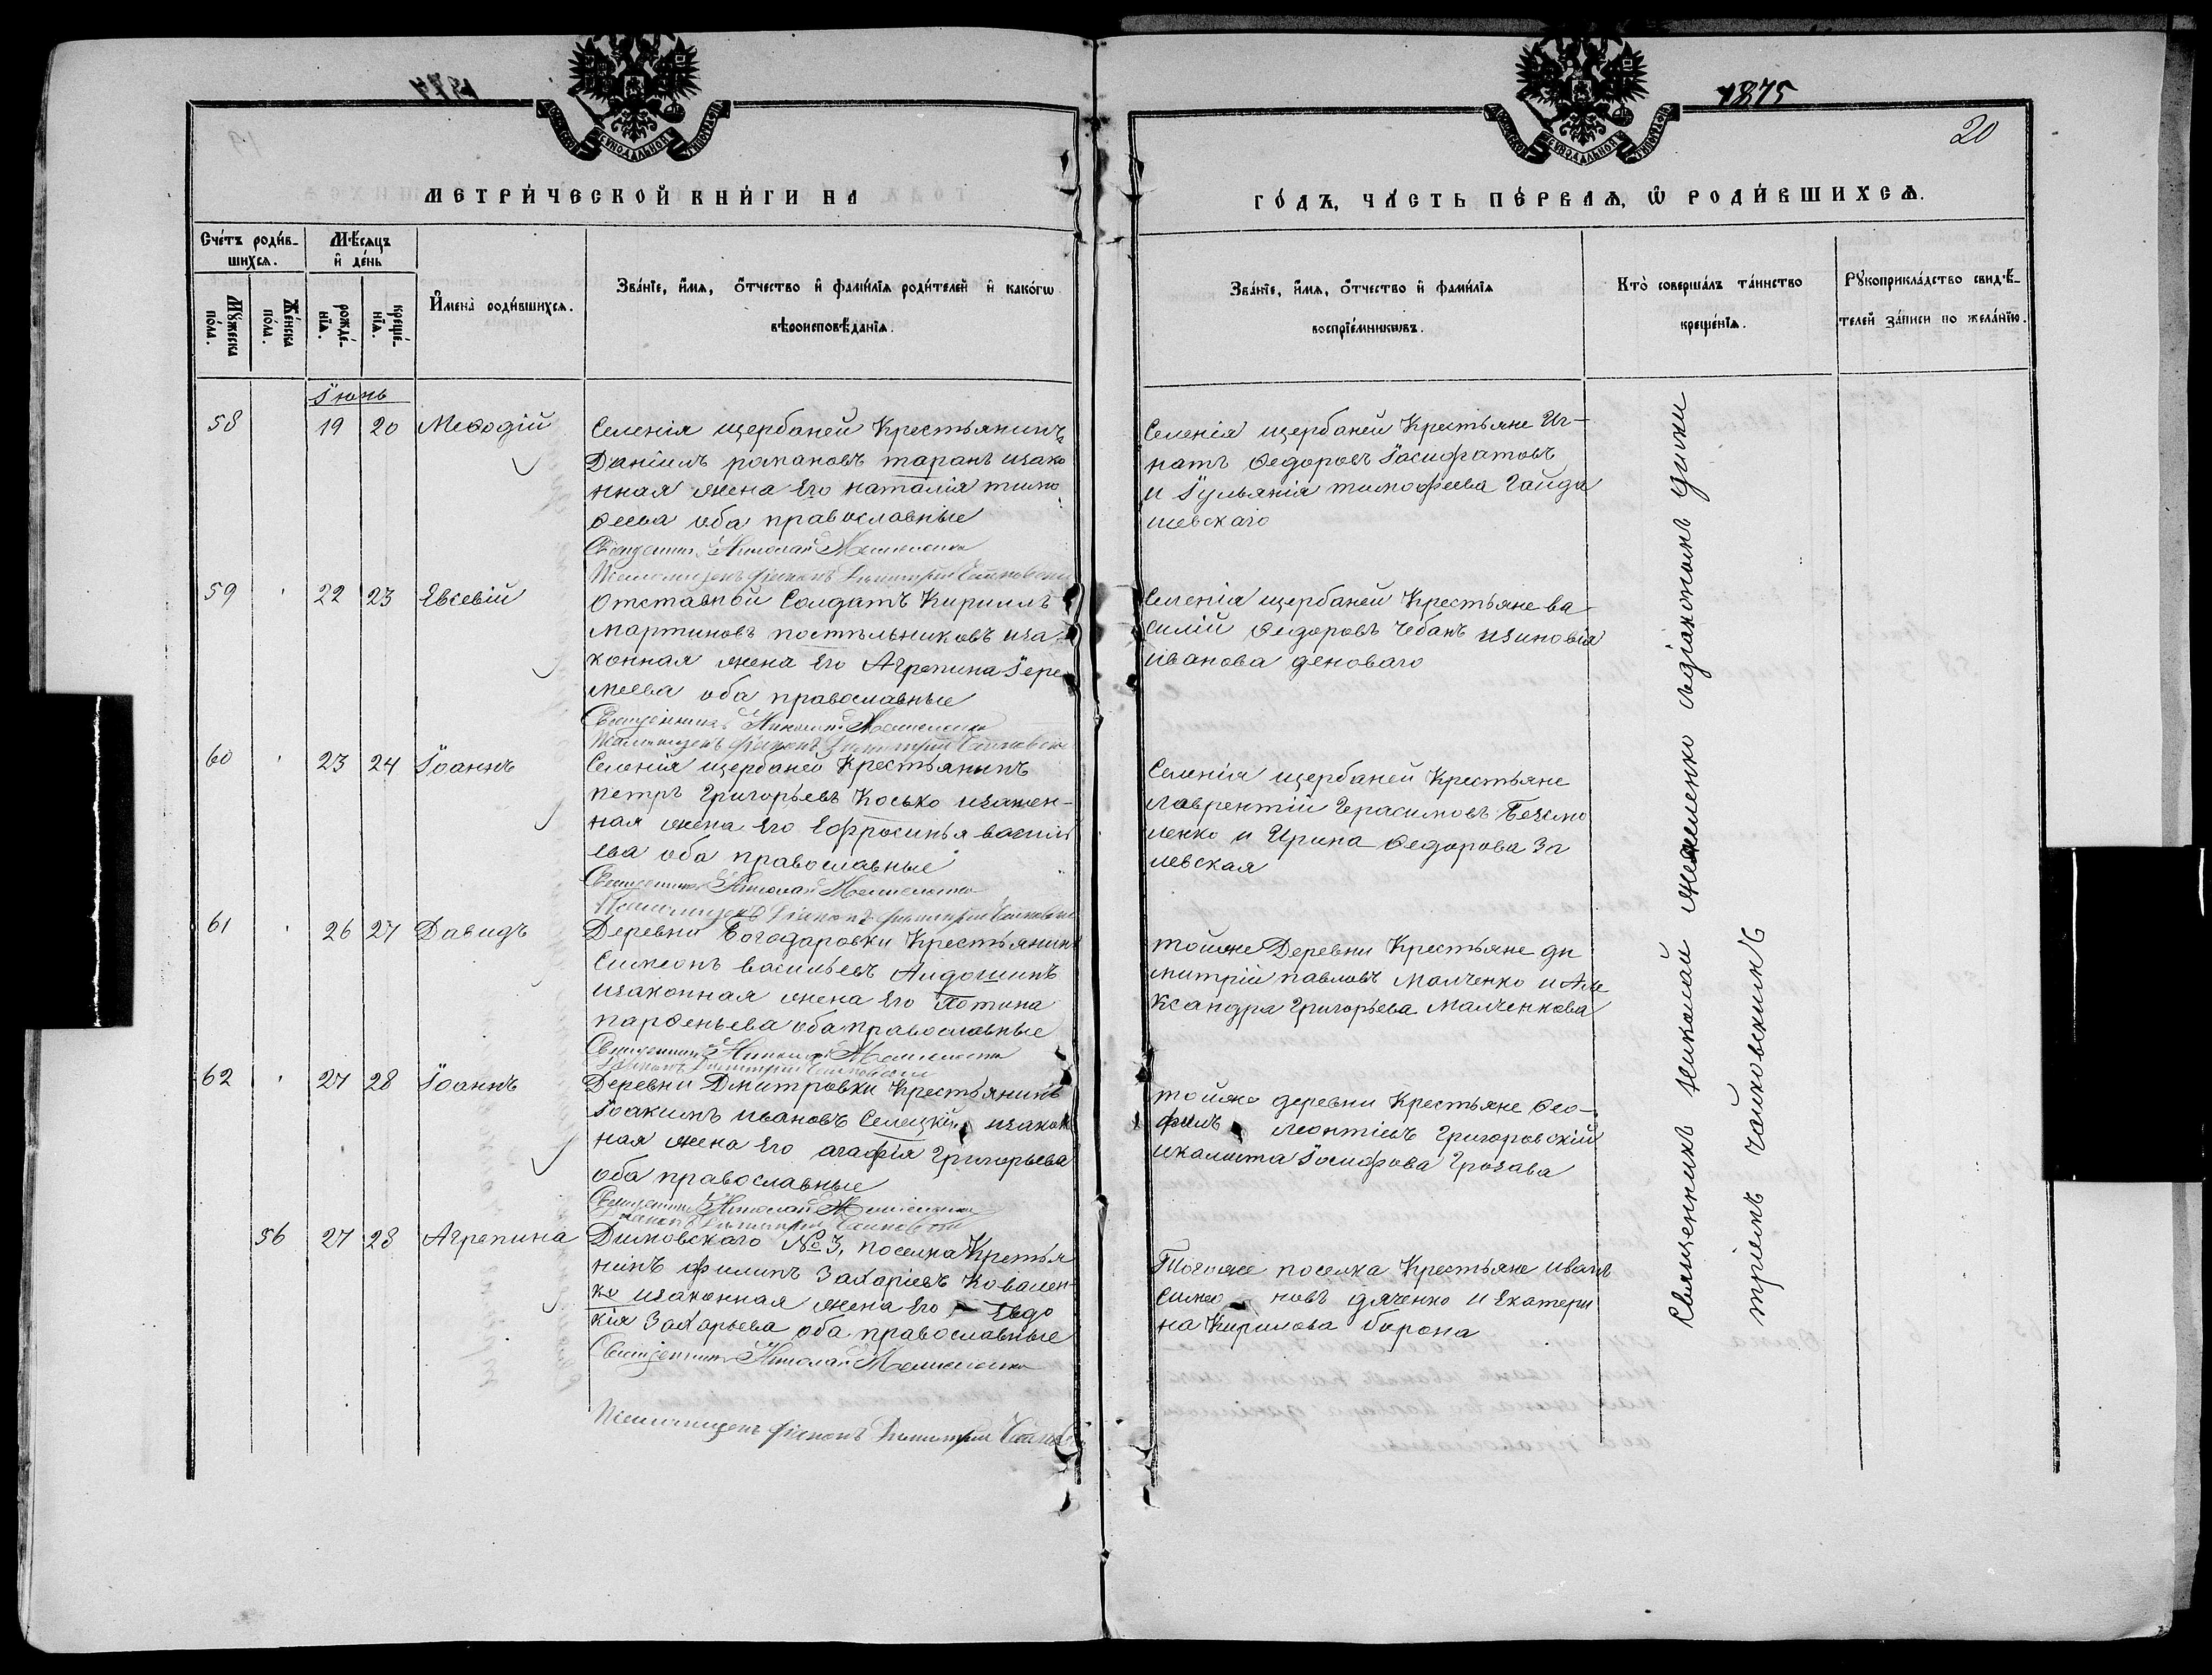 1875
20
МЕТРИ́ЧЕСКОЙ КНИ́ГИ НА
ГО́ДЪ, ЧА́СТЬ ПЕ́РВАѦ, Ѡ҆ РОДИ́ВШИХСѦ.
Сче́тъ роди́в-
шихсѧ.
Мѣ́сѧцъ
и҆ де́нь
Мꙋ́жеска
по́ла.
Же́нска
по́ла.
рожде́-
нїѧ.
креще́-
нїѧ.
И҆мена̀ роди́вшихсѧ.
Зва́нїе, и҆́мѧ, ѻ҆́тчество и҆ фами́лїѧ роди́телей и҆ како́гѡ
вѣроисповѣ́данїѧ.
Зва́нїе, и҆́мѧ, ѻ҆́тчество и҆ фами́лїѧ
воспрїе́мникѡвъ.
Кто̀ соверша́лъ та́инство
креще́нїѧ.
Рꙋкоприкла́дство свидѣ́-
телей за́писи по жела́нїю.
Іюнь
58 19 20 Меѳодій
Селенія щербаней Крестьянинъ
Даніилъ романовъ таранъ изако
нная жена Его наталія тимо
ѳеева оба православные
Священникъ Николай
Псаломщикъ діаконъ Димитрій Чайковскій
Селенія щербаней Крестьяне Иг-
натъ Ѳедоровъ Іосифатовъ
и Іульянія тимофеева Гайда
шевскаго
59 22 23 Евсевій
Отставной Солдатъ Кириллъ
Мартиновъ постельниковъ иза
конная жена Его Агрепина Іере
меева оба православные
Священникъ Николай
Псаломщикъ діаконъ Димитрій Чайковскій
Селенія щербаней Крестьяне ва-
силій Ѳедоровъ Чебанъ изиновія
иванова деноваго
60 23 24 Іоаннъ
Селенія щербаней Крестьянинъ
петръ Григорьевъ Косько изакон-
ная жена Его Ефросинья василь
ева оба православные
Священникъ Николай
Псаломщикъ діаконъ Димитрій Чайковскій
Селенія щербаней Крестьяне
лаврентій Герасимовъ Безсмо
ленко и Ирина Ѳедорова За
левская
61 26 27 Давидъ
Деревни Богодаровки Крестьянинъ
Симеонъ васильевъ Алдошинъ
изаконная жена Его Фотина
парѳеньева оба православные
Священникъ Николай
Діаконъ Димитрій Чайковскій
тойже Деревни Крестьяне ди
митрій павловъ Малченко и Але
ксандра Григорьева Малченкова
62 27 28 Іоаннъ
Деревни Дмитровки Крестьянинъ
Іоакимъ ивановъ Селецкій изакон
ная жена Его агафія Григорьева
оба православные
Священникъ Николай
Діаконъ Димитрій Чайковскій
тойже деревни Крестьяне Ѳео-
филъ леонтіевъ Григоровскій
Іосифова Грозава
56 27 28 Агрепина
Димовскаго №3, поселка Кретья
нинъ филипъ Захаріевъ Ковален-
ко изаконная жена Его Евдо
кія Захарьева оба православные
Священникъ Николай
Псаломщикъ діаконъ Димитрій
Тогоже поселка Крестьяне иванъ
симео новъ дяченко и Екатери
на Кирилова борона
Священникъ николай съдіакономъ
тріемъ Чайковскимъ